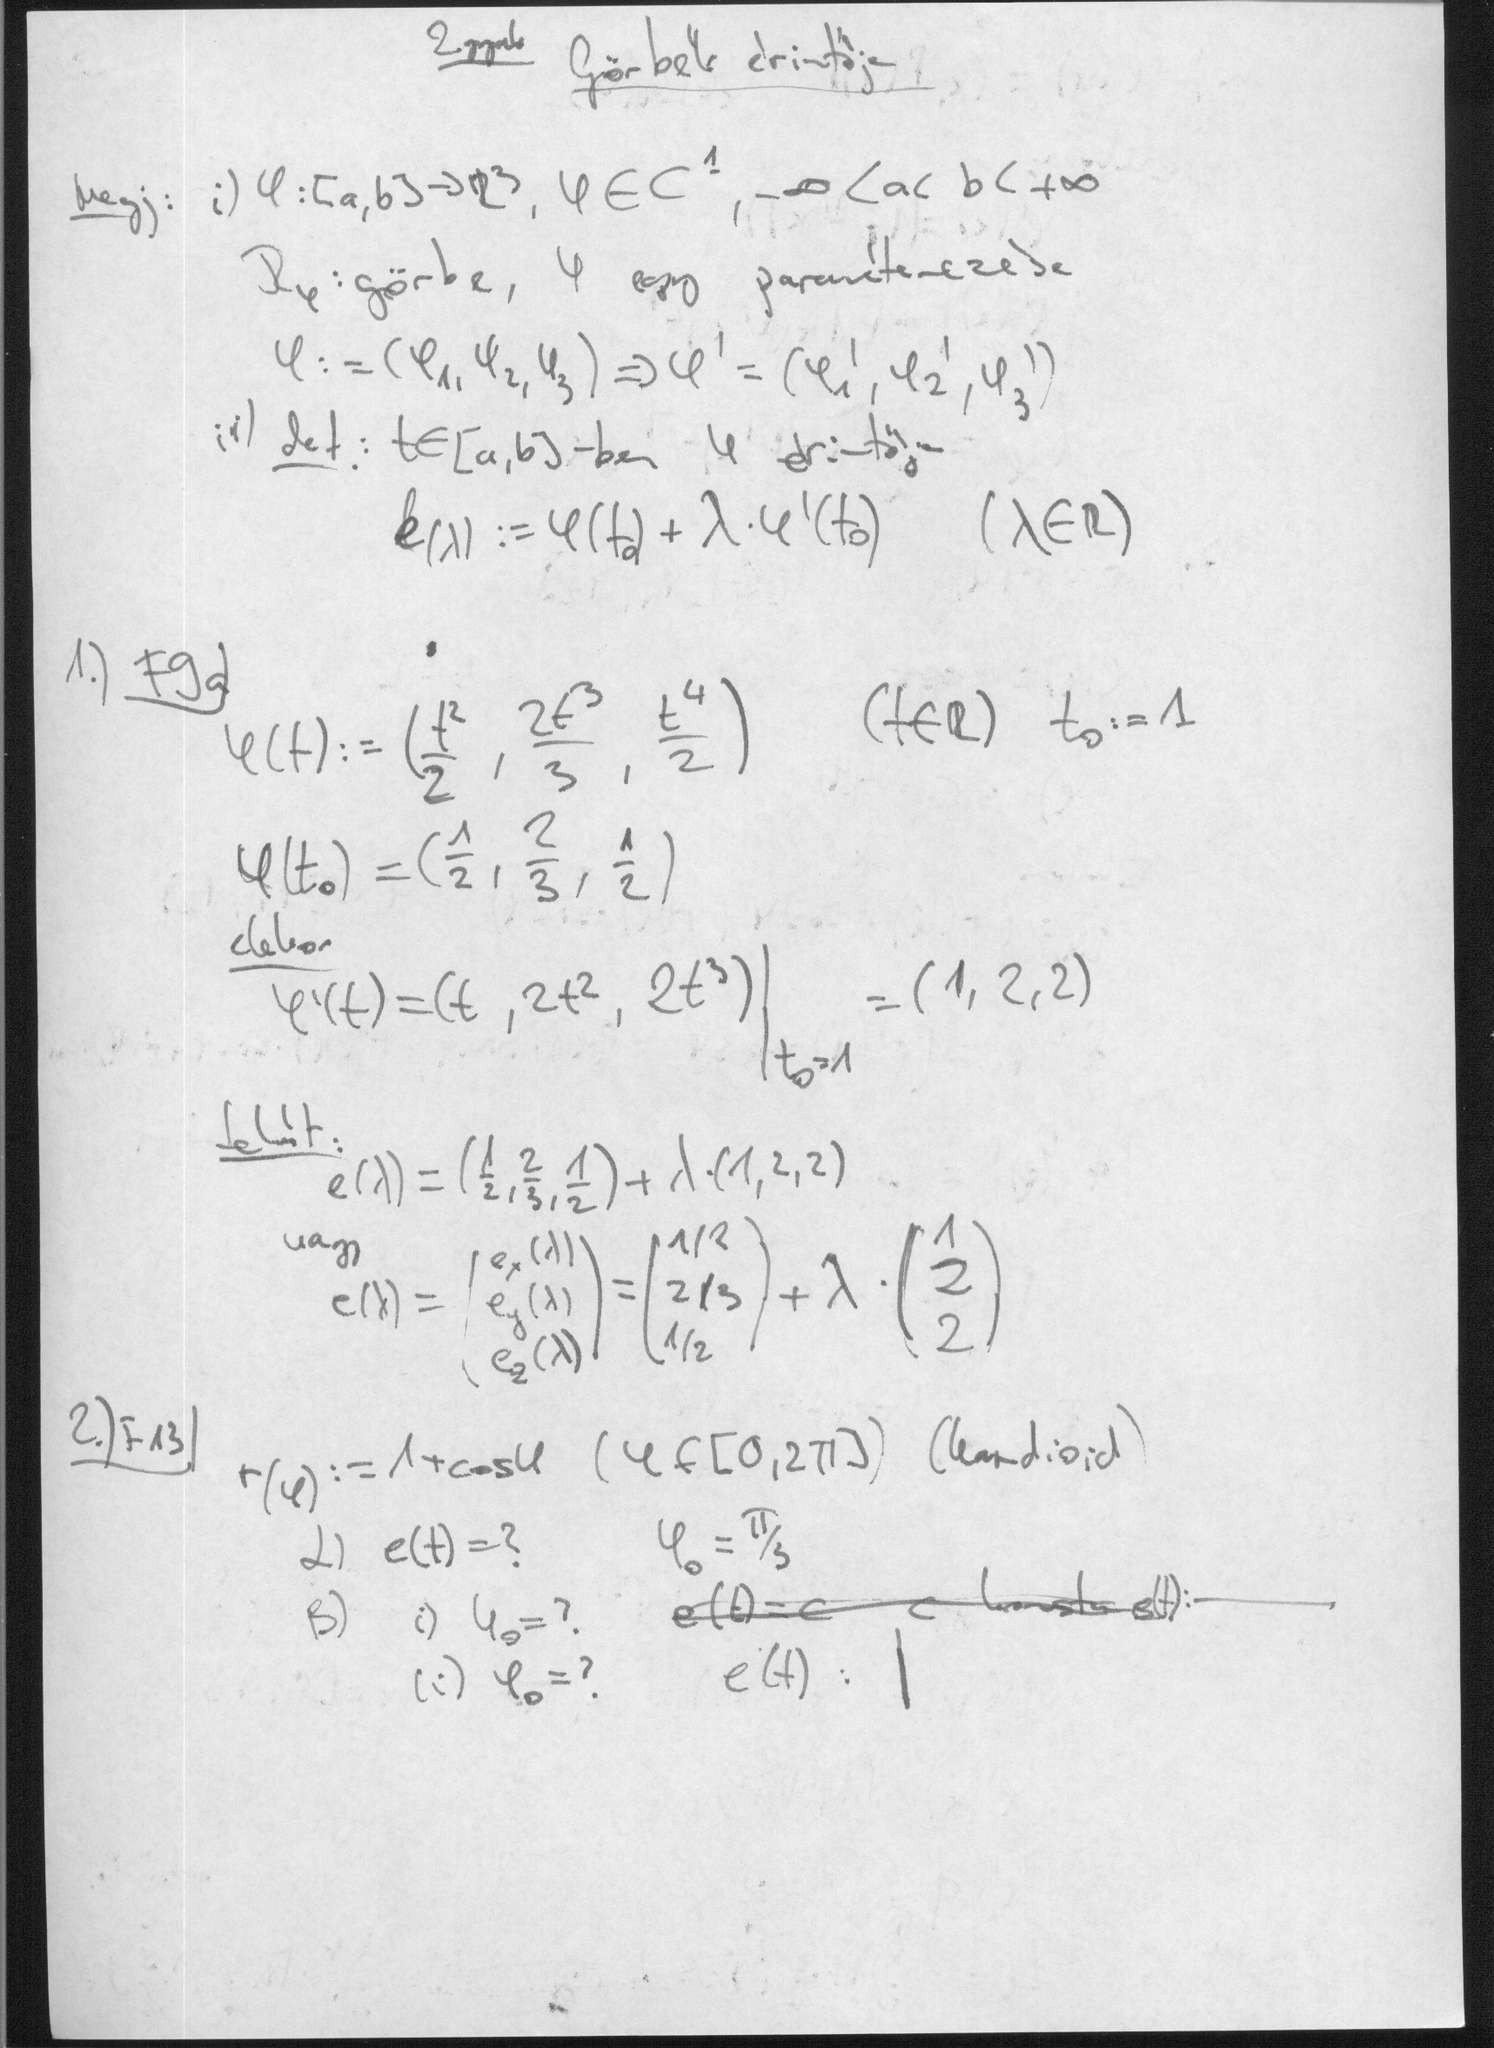 2. gyak Görbék érintője
Megj: i) φ: [a,b] → R³, φ ∈ C¹, -∞ < a < b < +∞
R_φ: görbe, φ egy paraméterezése
φ := (φ₁, φ₂, φ₃) ⇒ φ' = (φ₁', φ₂', φ₃')
ii) def.: t ∈ [a,b]-ben φ érintője
e(λ) := φ(t₀) + λ·φ'(t₀) (λ ∈ R)
1.) F9a
φ(t) := (t²/2, 2t³/3, t⁴/2) (t∈R) t₀ := 1
φ(t₀) = (1/2, 2/3, 1/2)
ekkor
φ'(t) = (t, 2t², 2t³)|t₀=1 = (1, 2, 2)
tehát:
e(λ) = (1/2, 2/3, 1/2) + λ·(1, 2, 2)
vagy
e(λ) = (e_x(λ) e_y(λ) e_z(λ)) = (1/2 2/3 1/2) + λ · (1 2 2)
2.) F13
r(φ) := 1+cosφ (φ ∈ [0, 2π]) (kardioid)
α) e(t) = ? φ₀ = π/3
β) i) φ₀ = ? e(t) = c c konstans e(t): —
ii) φ₀ = ? e(t) : |